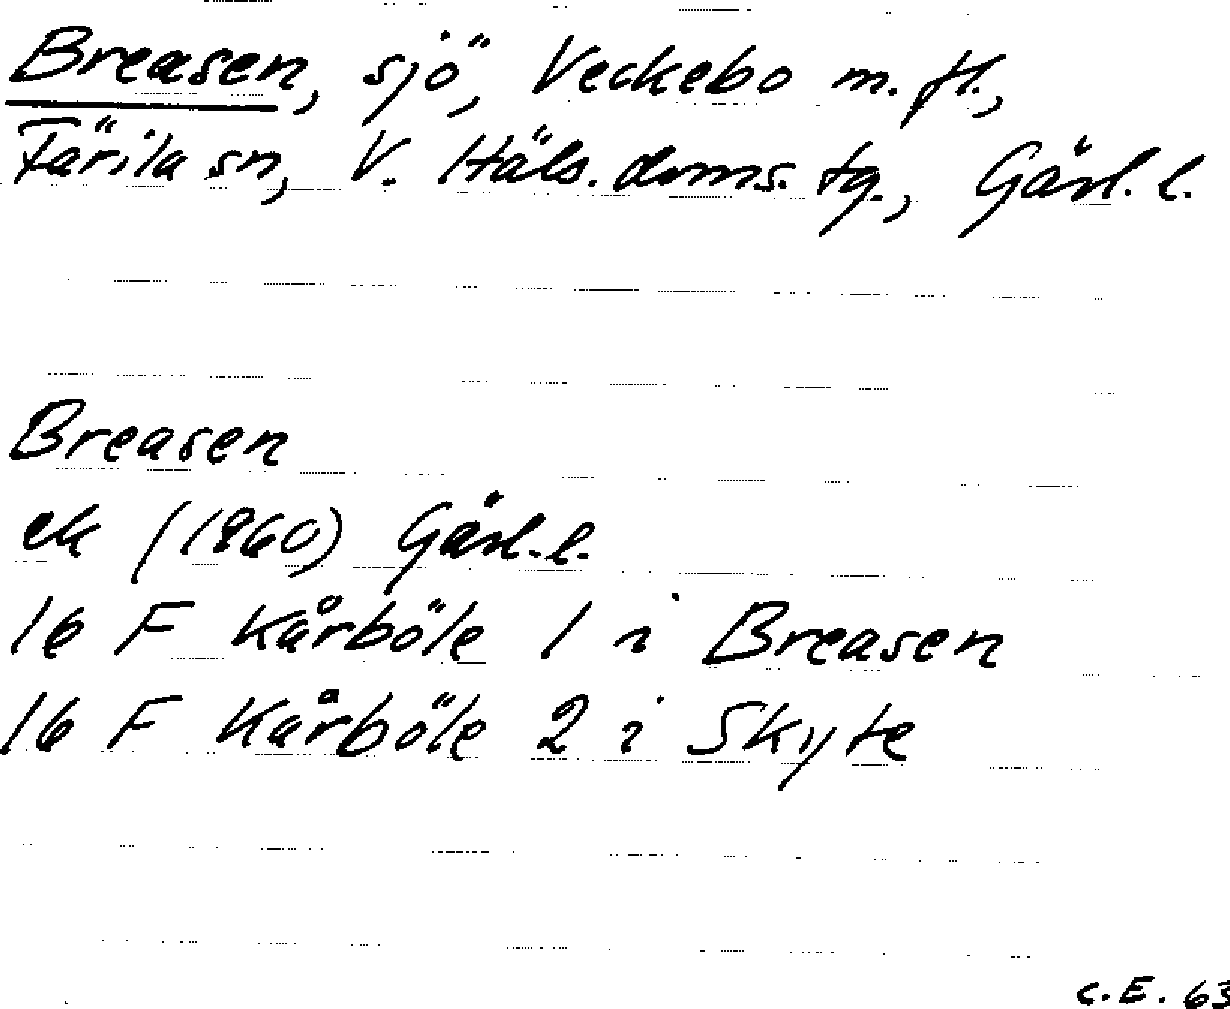 Breasen, sjö, Veckebo m. fl.,
Färila sn, V. Häls. doms. tg., Gävl. l.
Breasen
ek (1960) Gävl. l.
16 F Kårböle 1 i Breasen
16 F Kårböle 2 i Skyte
C.E. 63